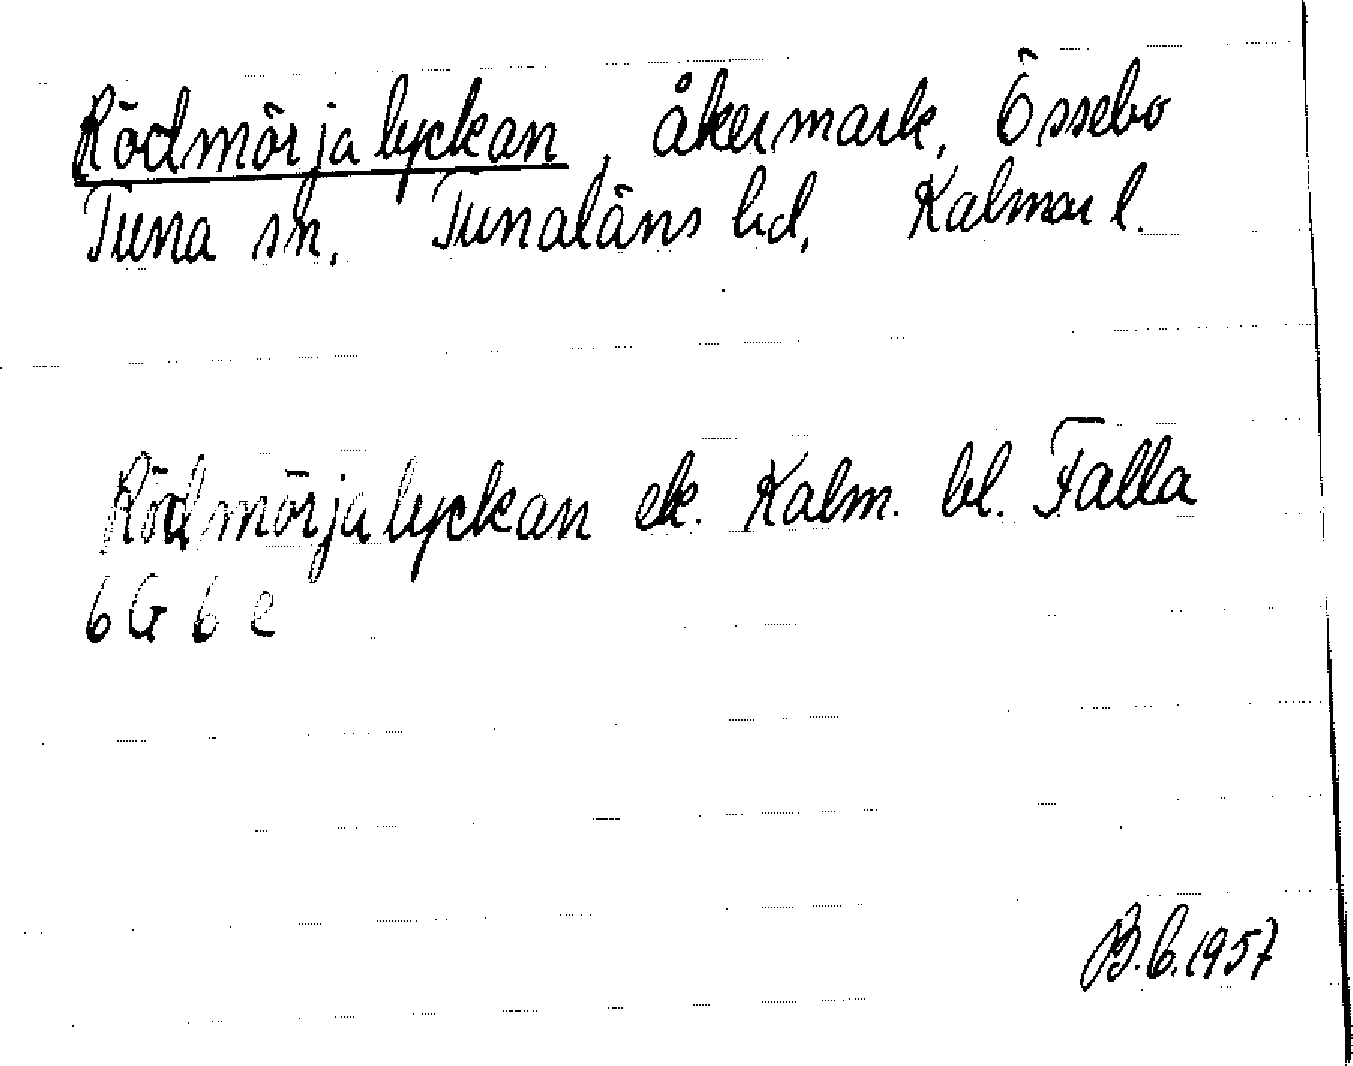 Rödmörjalyckan, åkermark, Össebo
Tuna sn, Tunaläns hd, Kalmar l.
Rödmörjalyckan ek. Kalm. bl. Falla
6 G 6 e
B.C.1957